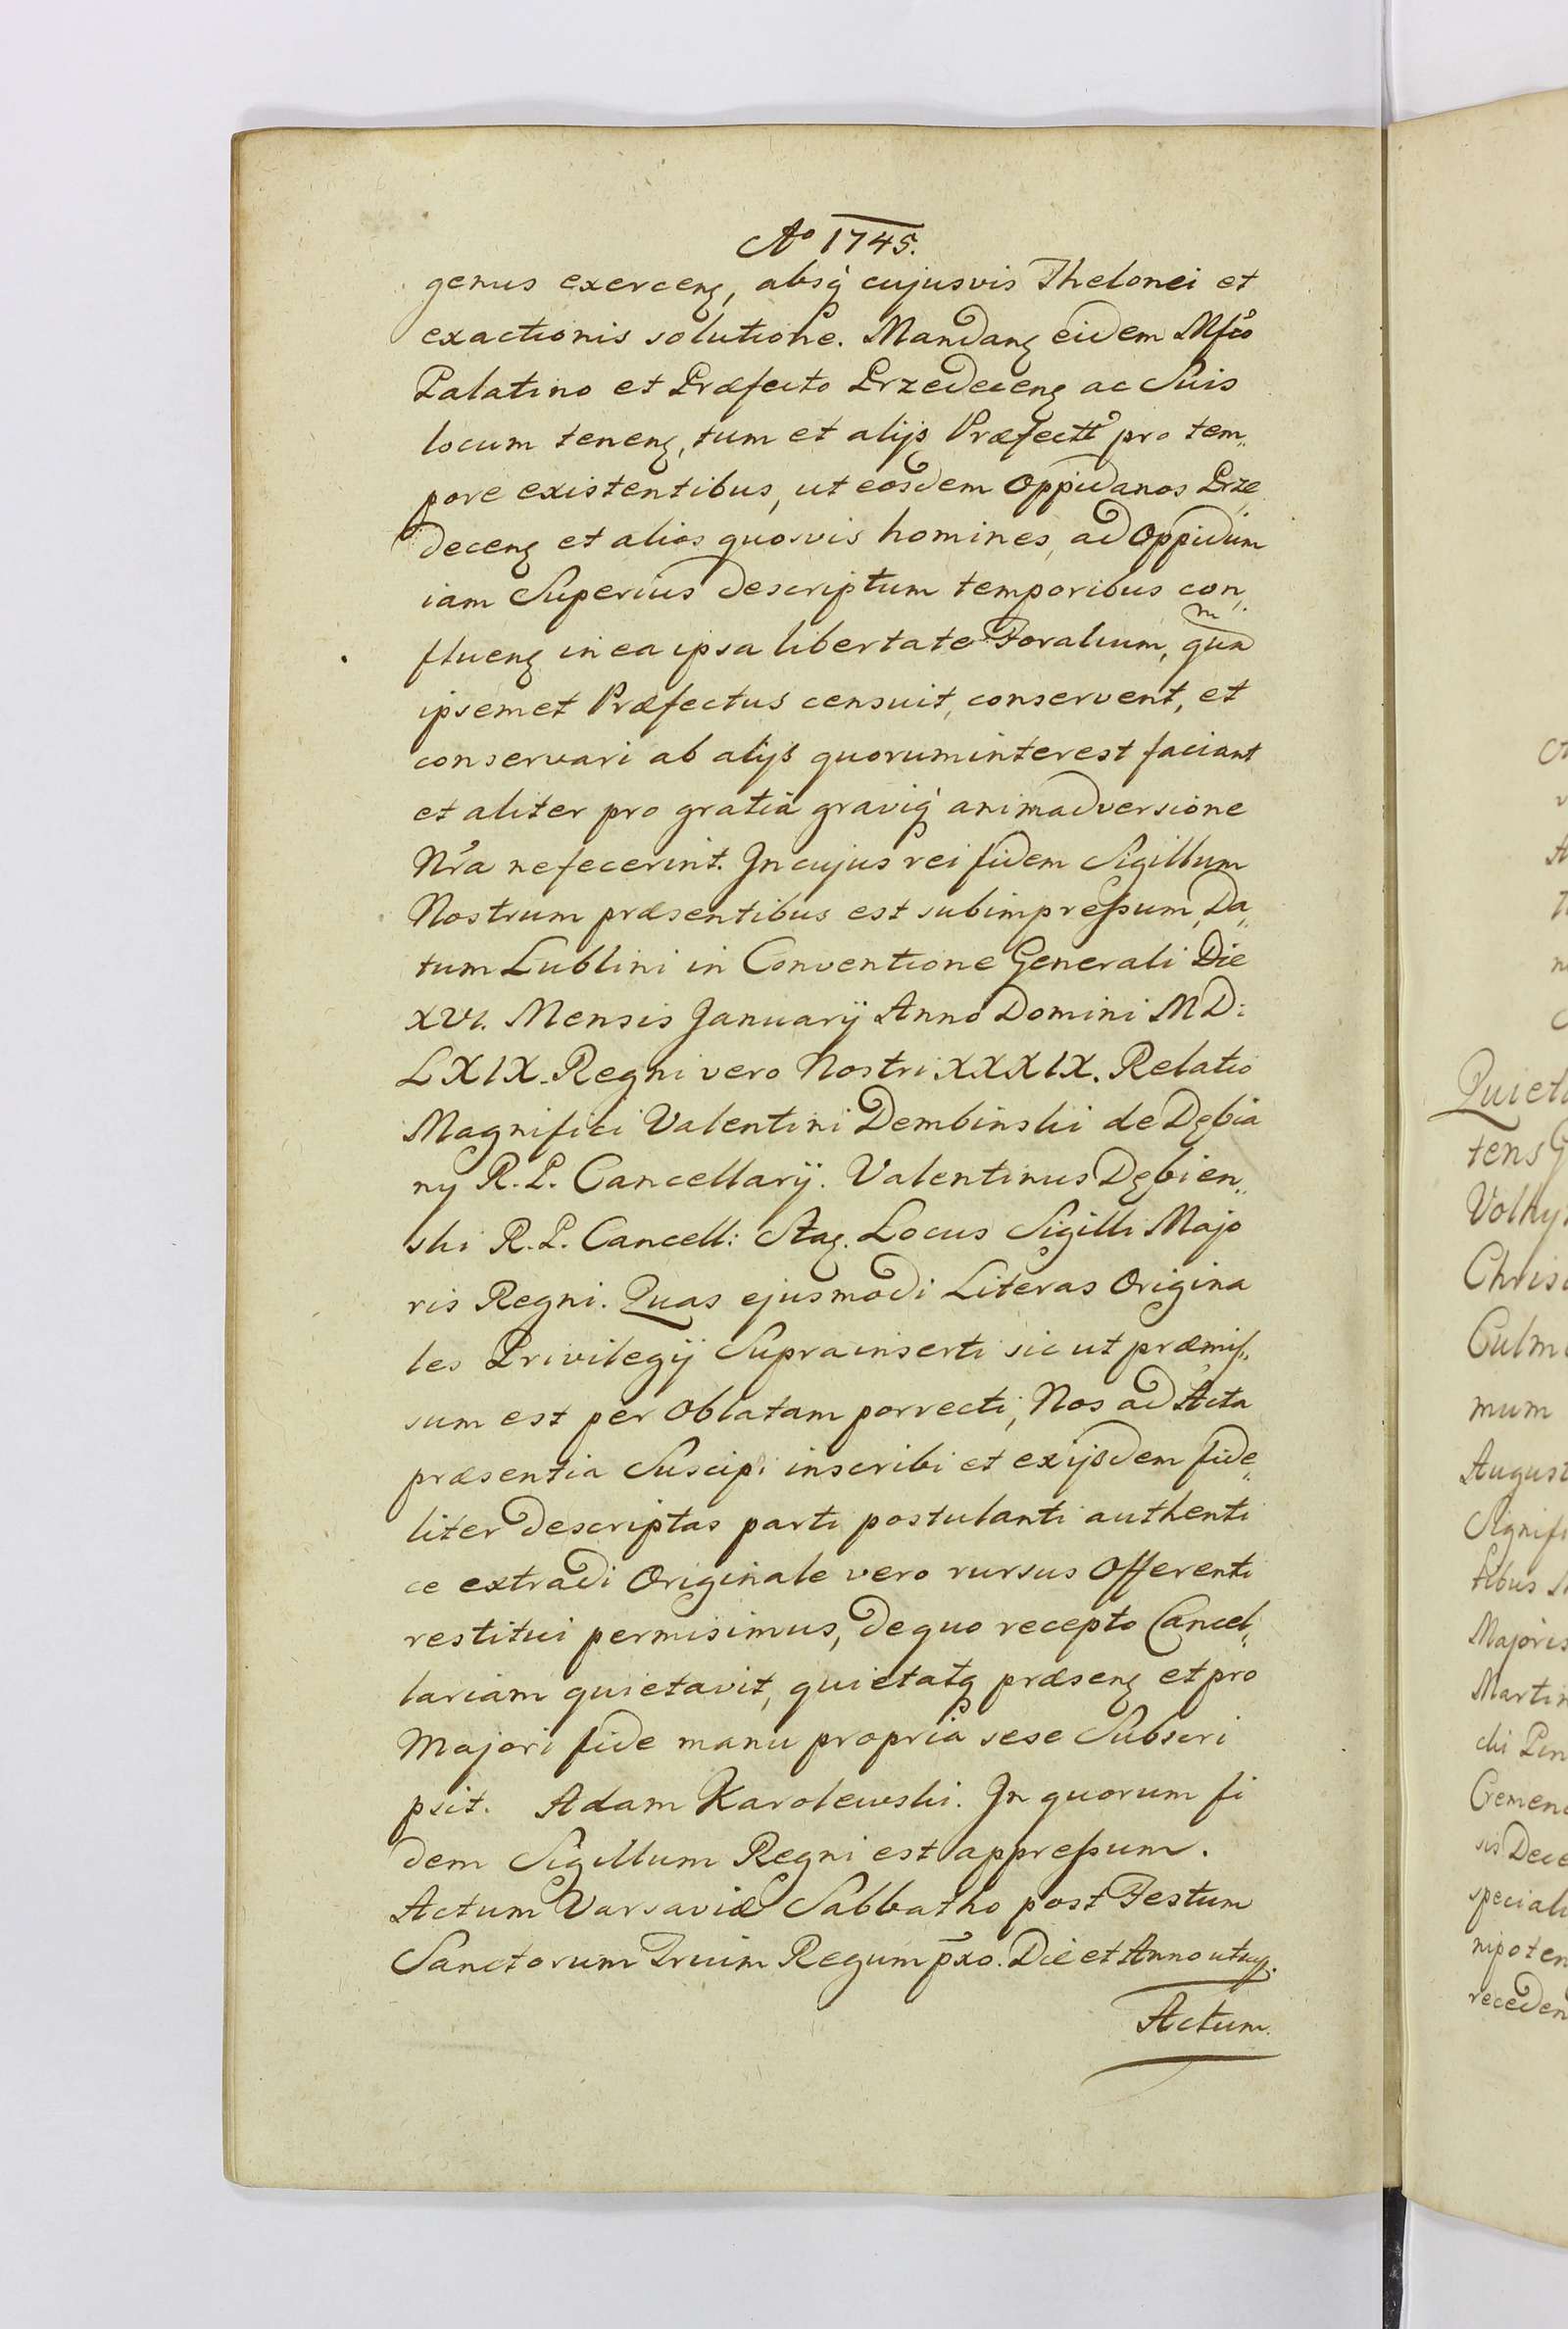 Aº 1745.
genus exerceng, absq̀ cujusvis Thelonei et
exactionis solutione. Mandang eidem Mfco
Palatino et Præfecto Przedeceng ac Suis
locum teneng, tum et alijs Præfectt pro tem„
pore existentibus, ut eosdem Oppidanos Prze„
deceng et alios quosvis homines, ad Oppidum
iam Superius descriptum temporibus con„
flueng in ea ipsa libertate Foralium, qua
ipsemet Præfectus censuit, conservent, et
conservari ab alijs quoruminterest faciant
et aliter pro gratia graviq̀ animadversione
Nra nefecerint. In cujus rei fidem Sigillum
Nostrum præsentibus est subimpreſsum, Da„
tum Lublini in Conventione Generali Die
XVI. Mensis Januarij Anno Domini MD:
LXIX. Regni vero Nostri XXXIX. Relatio
Magnifici Valentini Dembinski de Dębia
ny R. P. Cancellarij. Valentinus Dębien„
ski R. P. Cancell: Locus Sigilli Majo
ris Regni. Quas ejusmodi Literas Origina
les Privilegij Suprainserti sic ut præmiſ„
sum est per Oblatam porrecti, Nos ad Acta
præsentia Suscipi inscribi et ex ijsdem fide„
liter descriptas parti postulanti authenti
ce extradi Originale vero rursus Offerenti
restitui permisimus, de quo recepto Cancel„
lariam quietavit, quietatq præseng et pro
Majori fide manu propria sese Subscri
psit. Adam Karolewski. In quorum fi
dem Sigillum Regni est appreſsum.
Actum Varsaviæ Sabbatho post Festum
Sanctorum Trium Regum p̄xo. Die et Anno utsup.
Actum
Quiet
tens
Volhy
Chris
Culm
mum
August
Signifi
tibus
Majoris
Martin
cki Pin
Cremen
sis Dece
speciali
nipoten
receden